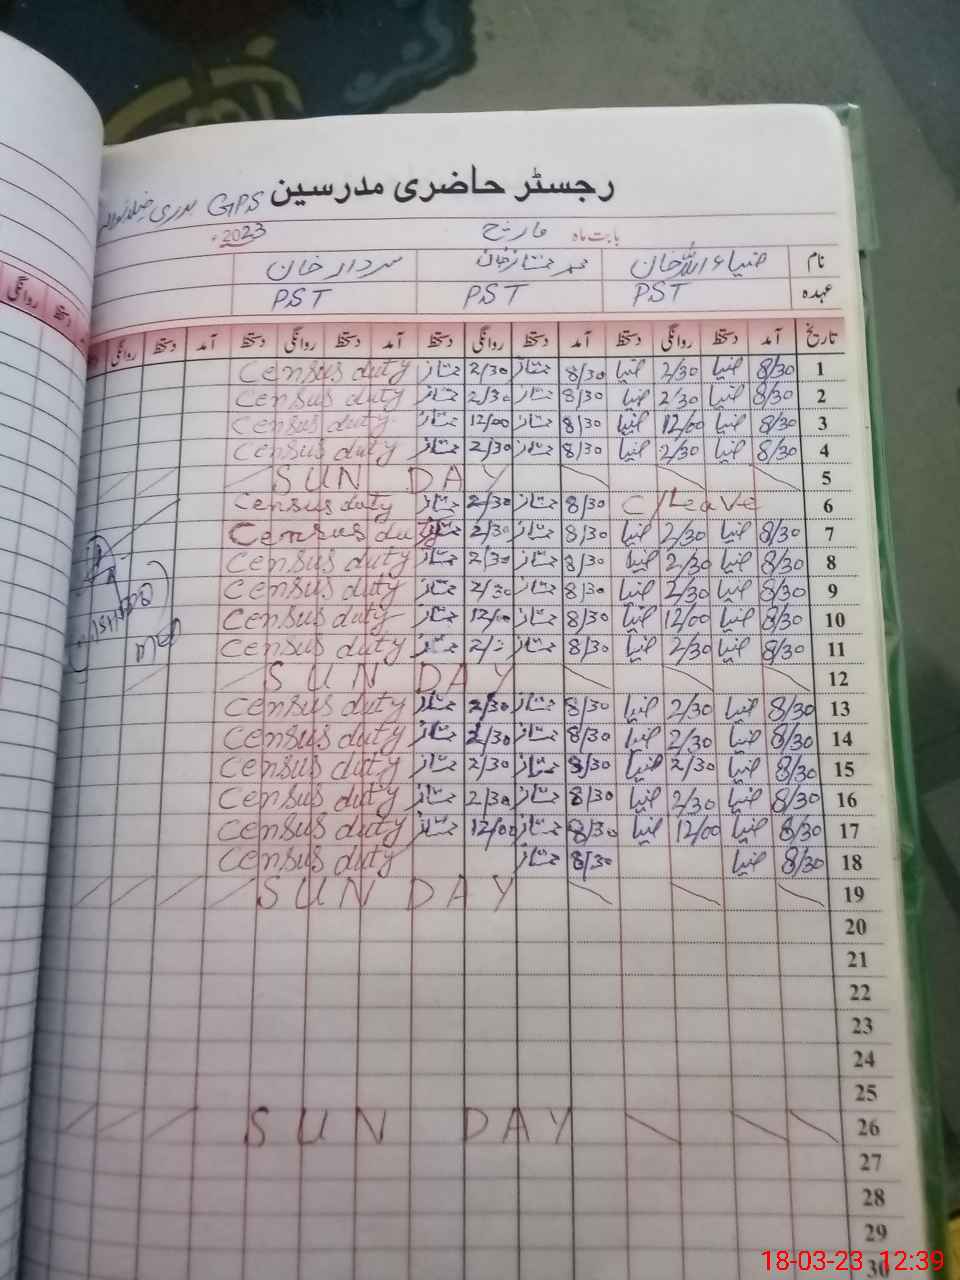 رجسٹر حاضری مدرسین GPS
بابت ماہ مارچ 2023ء
نام ضیاء اللہ خان محمد ممتاز خان سردار خان
عہدہ PST PST PST
تاریخ آمد دستخط روانگی دستخط آمد دستخط روانگی دستخط آمد دستخط روانگی دستخط آمد دستخط روانگی
روانگی دستخط
1 8/30 ضیا 2/30 ضیا 8/30 ممتاز 2/30 ممتاز Census duty
2 8/30 ضیا 2/30 ضیا 8/30 ممتاز 2/30 ممتاز Census duty
3 8/30 ضیا 12/00 ضیا 8/30 ممتاز 12/00 ممتاز Census duty
4 8/30 ضیا 2/30 ضیا 8/30 ممتاز 2/30 ممتاز Census duty
5 SUN DAY
6 C/Leave 8/30 ممتاز 2/30 ممتاز Census duty
7 8/30 ضیا 2/30 ضیا 8/30 ممتاز 2/30 ممتاز Census duty
8 8/30 ضیا 2/30 ضیا 8/30 ممتاز 2/30 ممتاز Census duty
9 8/30 ضیا 2/30 ضیا 8/30 ممتاز 2/30 ممتاز Census duty
10 8/30 ضیا 12/00 ضیا 8/30 ممتاز 12/00 ممتاز Census duty
11 8/30 ضیا 2/30 ضیا 8/30 ممتاز ممتاز Census duty
12 SUN DAY
13 8/30 ضیا 2/30 ضیا 8/30 ممتاز 2/30 ممتاز Census duty
14 8/30 ضیا 2/30 ضیا 8/30 ممتاز 2/30 ممتاز Census duty
15 8/30 ضیا 2/30 ضیا 8/30 ممتاز 2/30 ممتاز Census duty
16 8/30 ضیا 2/30 ضیا 8/30 ممتاز 2/30 ممتاز Census duty
17 8/30 ضیا 12/00 ضیا 8/30 ممتاز 12/00 ممتاز Census duty
18 8/30 ضیا 8/30 ممتاز Census duty
19 SUN DAY
20
21
22
23
24
25
26 SUN DAY
27
28
29
30
18-03-23 12:39